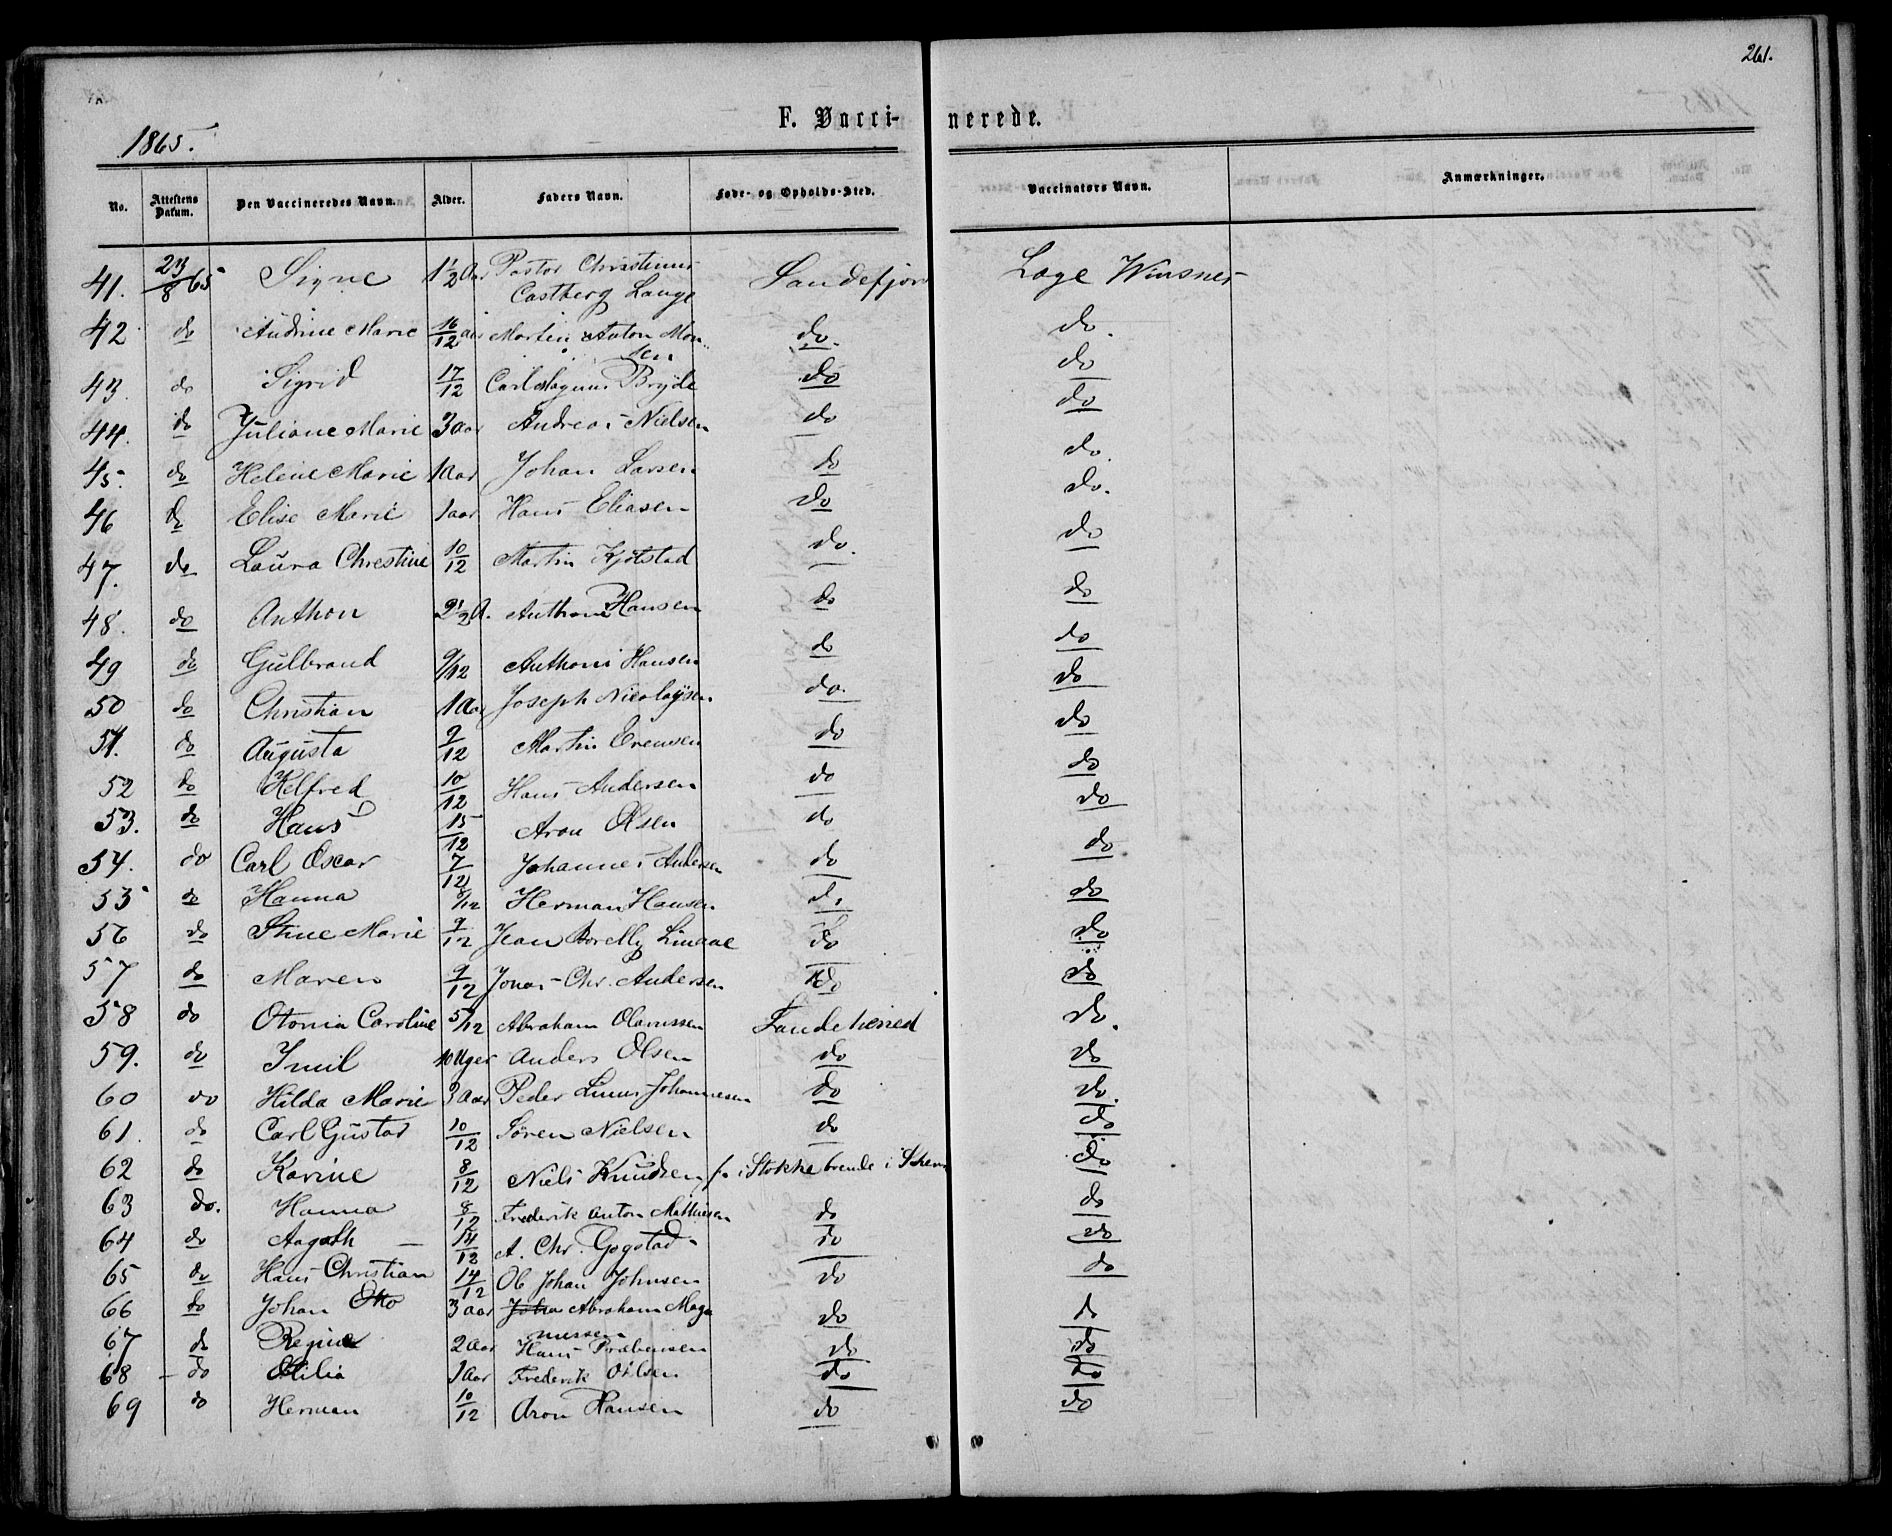 261.
F. Vaccinerede.
1865.
No. Attestens Datum. Den Vaccineredes Navn. Alder. Faders Navn. Føde- og Opholds-Sted. Vaccinators Navn. Anmærkninger.
41. 23/8 65 Signe 1 1/2 Aar Pastor Christianus Castberg Lange Sandefjord Læge Winsnes
42 do Andrine Marie 16/12 aar Martin Anton Monsen do. do.
43. do Sigrid 17/12 Carl Magnus Bryde do do
44. do Juliane Marie 3 aar Andreas Nielsen do do
45. do Helene Marie 1 Aar Johan Larsen do do.
46 do Elise Marie 1 aar Hans Eliasen do do.
47. do Laura Christine 10/12 Martin Kjølstad do. do
48. do Anthon 2 1/2 A. Anthoni Hansen do do
49 do Gulbrand 9/12 Anthoni Hansen do do
50 do Christian 1 Aar Joseph Nicolaysen do. do
51. do Augusta 9/12 Martin Evensen do do
52 do Helfred 10/12 Hans Andersen do do
53. do Hans 15/12 Aron Olsen do do
54. do Carl Oscar 7/12 Johannes Andersen do do
55 do Hanna 8/12 Herman Hansen do do
56 do Stine Marie 9/12 Jean Borelly Linaae do do
57 do Maren 9/12 Jonas Chr. Andersen do do
58 do Otonia Caroline 5/12 Abraham Olavussen Sandeherred do.
59. do Imil 10 Uger Anders Olsen do do
60 do Hilda Marie 3 Aar Peder Linus Johannesen do do.
61. do Carl Gustav 10/12 Søren Nielsen do do
62 do Karine 8/12 Niels Knudsen f. i Stokke boende i Skeen do
63 do. Hanna 8/12 Frederik Anton Mathiesen do do
64 do Aagoth 14/12 A. Chr. Gogstad do do
65 do Hans Christian 14/12 Ole Johan Johnsen do do
66 do Johan Otto 3 aar Abraham Magnussen do do
67 do Regine 2 Aar Hans Prebensen do do
68 do Otilia 1 Aar Frederik Ohlsen do do
69 do Herman 10/12 Aron Hansen do do